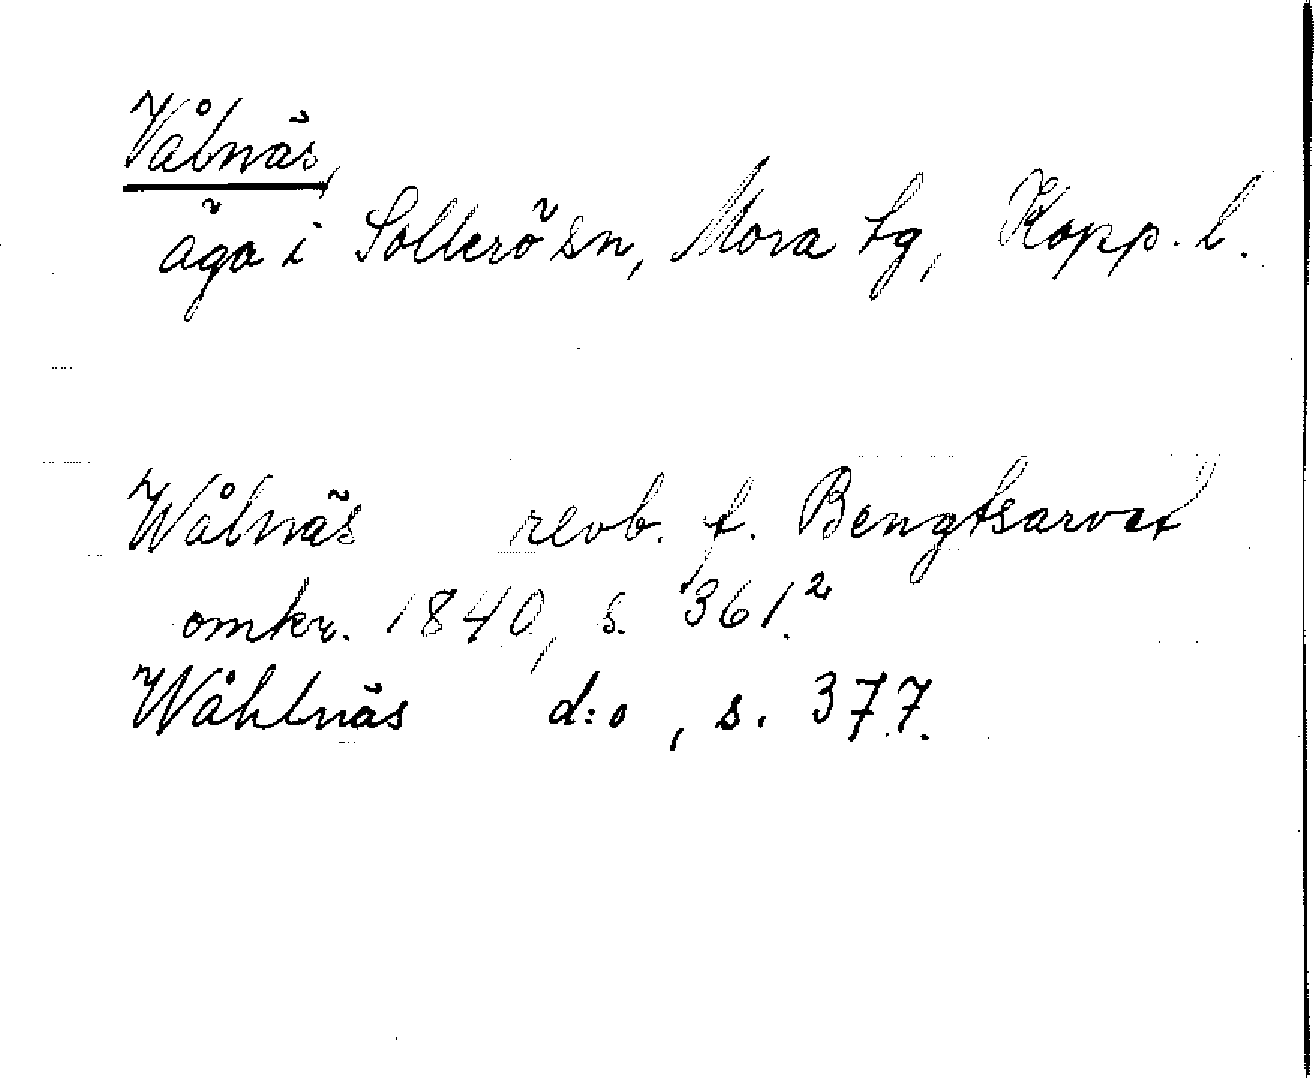 Vålnäs,
äga i Sollerö sn, Mora tg, Kopp. l.
Wålnäs revb. f. Bengtsarvet
omkr. 1840, s. 361.²
Wåhlnäs d:o, s. 377.